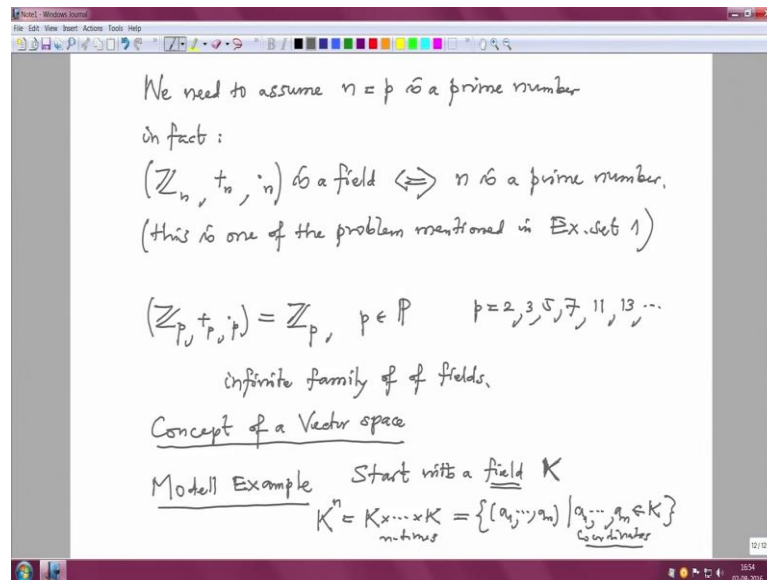 Note1 - Windows Journal
File Edit View Insert Actions Tools Help
We need to assume n = p is a prime number
in fact :
(ℤₙ, +ₙ, ·ₙ) is a field ⟺ n is a prime number.
(this is one of the problem mentioned in Ex. set 1)
(ℤₚ, +ₚ, ·ₚ) = ℤₚ, p ∈ ℙ p = 2, 3, 5, 7, 11, 13, ...
infinite family of of fields.
Concept of a Vector space
Modell Example Start with a field K
Kⁿ = K×⋯×K = {(a₁,⋯,aₙ) | a₁,⋯,aₙ ∈ K}
n-times coordinates
12/12
16:54
02-08-2016